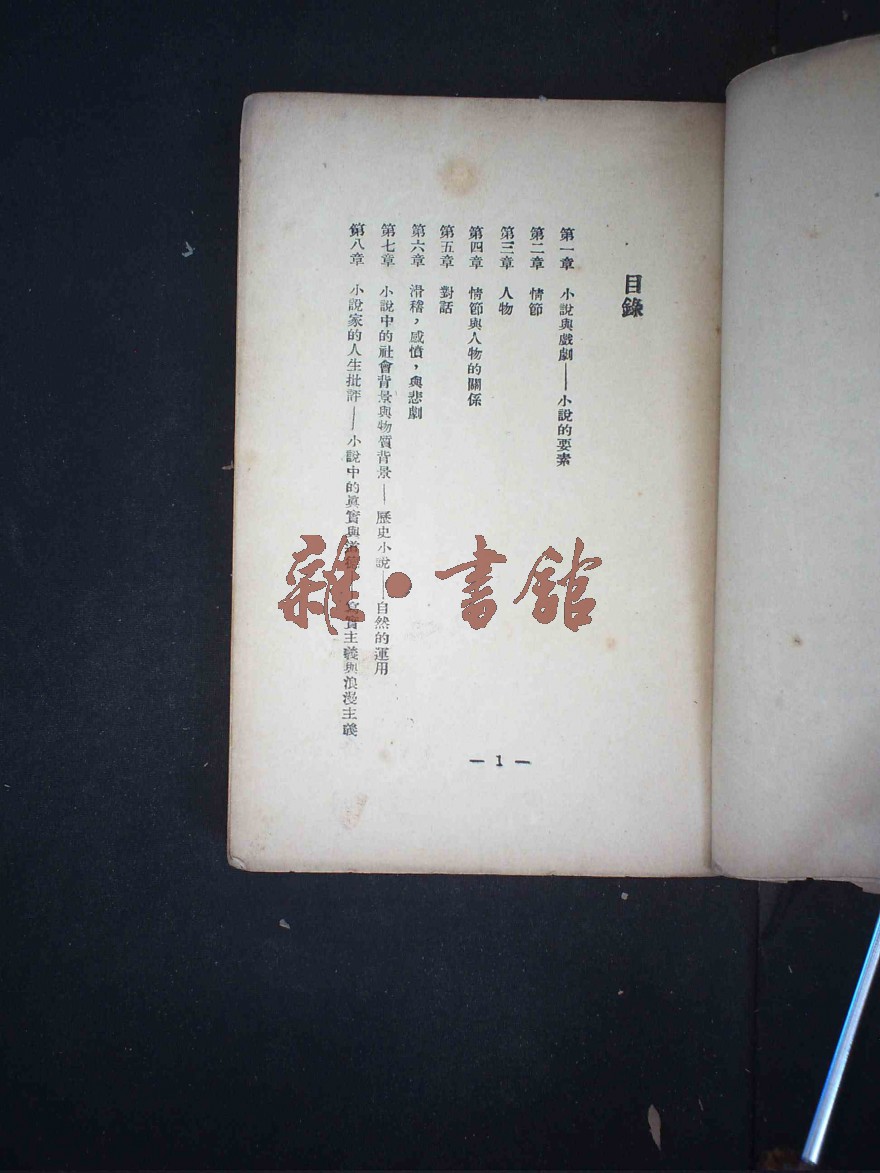 目錄
第一章 小說與戲劇——小說的要素
第二章 情節
第三章 人物
第四章 情節與人物的關係
第五章 對話
第六章 滑稽，感憤，與悲劇
第七章 小說中的社會背景與物質背景——歷史小說——自然的運用
第八章 小說家的人生批評——小說中的眞實與 寫實主義與浪漫主義
— 1 —
雜·書館